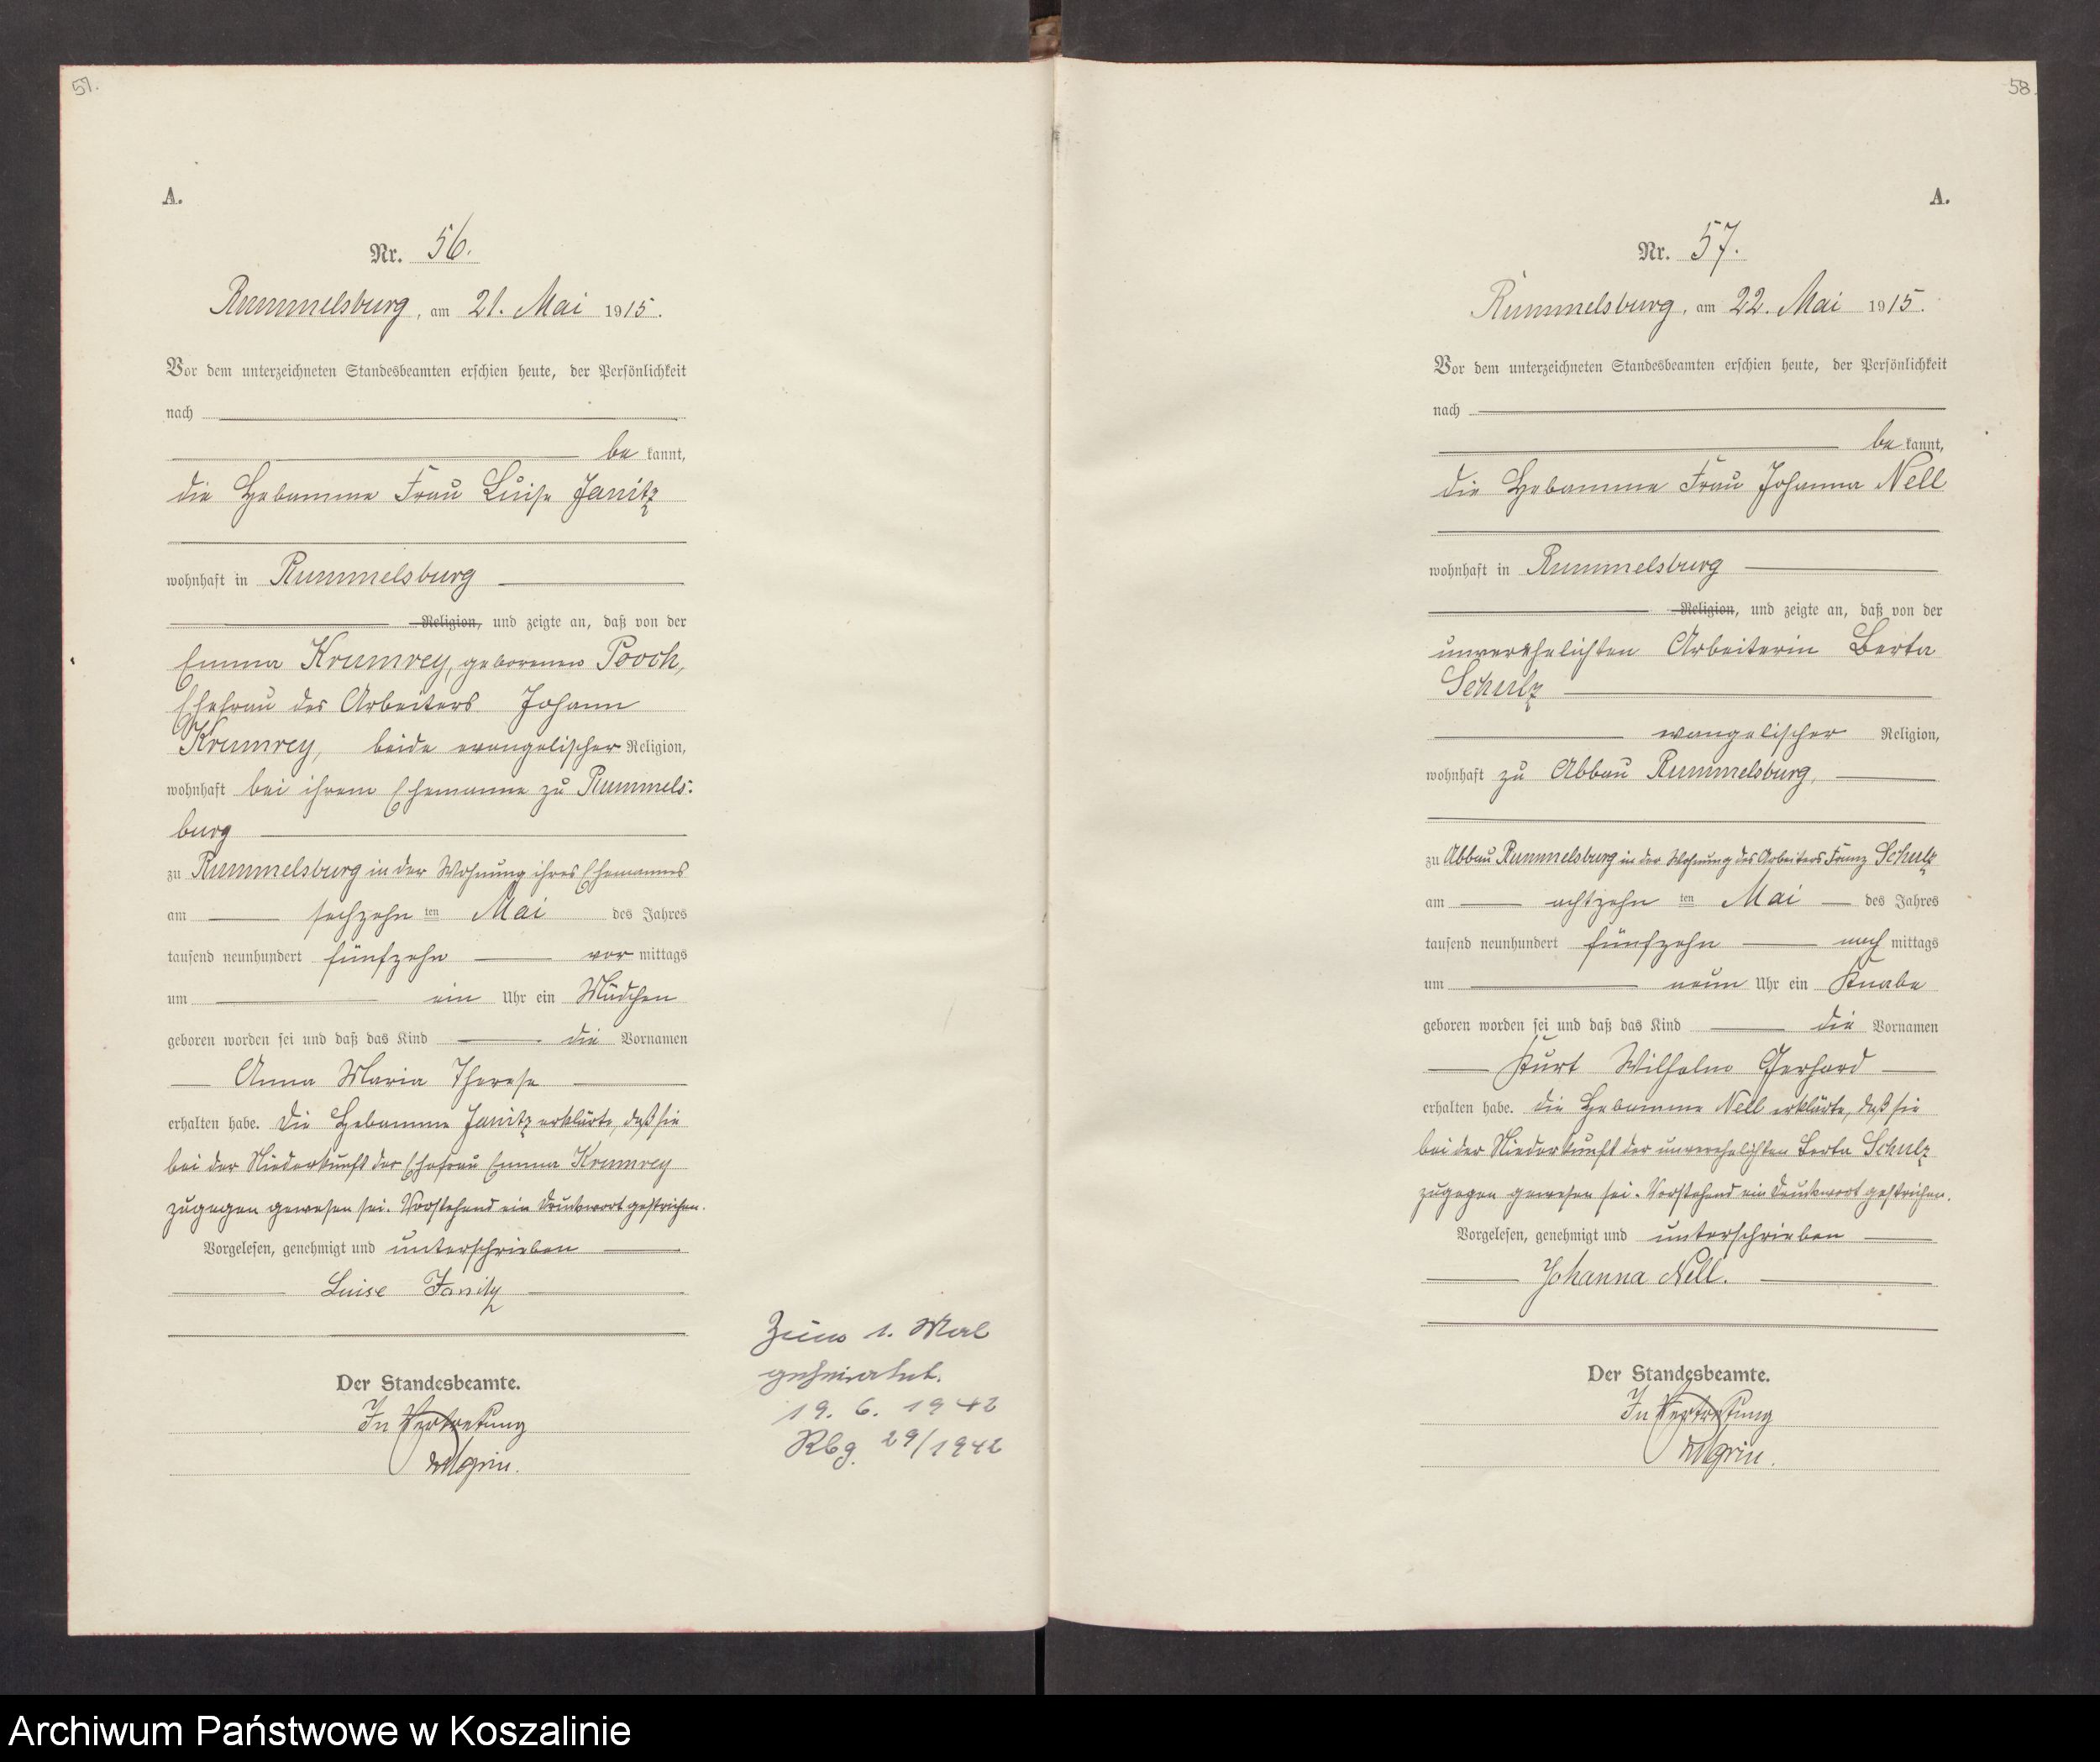 57.
A.
Nr. 56.
Rummelsburg, am 21. Mai 1915.
Vor dem unterzeichneten Standesbeamten erschien heute, der Persönlichkeit
nach
be kannt,
die Hebamme Frau Luise Janitz
wohnhaft in Rummelsburg
Religion, und zeigte an, daß von der
Emma Krumrey, geborenen Pooch,
Ehefrau des Arbeiters Johann
Krumrey, beide evangelischer Religion,
wohnhaft bei ihrem Ehemanne zu Rummels-
burg
zu Rummelsburg in der Wohnung ihres Ehemannes
am sechzehn ten Mai des Jahres
tausend neunhundert fünfzehn vor mittags
um ein Uhr ein Mädchen
geboren worden sei und daß das Kind die Vornamen
Anna Maria Therese
erhalten habe. Die Hebamme Janitz erklärte, daß sie
bei der Niederkunft der Ehefrau Emma Krumrey
zugegen gewesen sei. Vorstehend ein Druckwort gestrichen.
Vorgelesen, genehmigt und unterschrieben
Luise Janitz
Der Standesbeamte.
In Vertretung
Zum 1. Mal
geheiratet.
19. 6. 1942
Rbg. 29/1942
58.
A.
Nr. 57.
Rummelsburg, am 22. Mai 1915.
Vor dem unterzeichneten Standesbeamten erschien heute, der Persönlichkeit
nach
be kannt,
die Hebamme Frau Johanna Nell
wohnhaft in Rummelsburg
Religion, und zeigte an, daß von der
unverehelichten Arbeiterin Berta
Schulz
evangelischer Religion,
wohnhaft zu Abbau Rummelsburg,
zu Abbau Rummelsburg in der Wohnung des Arbeiters Franz Schulz
am achtzehn ten Mai des Jahres
tausend neunhundert fünfzehn nach mittags
um neun Uhr ein Knabe
geboren worden sei und daß das Kind die Vornamen
Kurt Wilhelm Gerhard
erhalten habe. Die Hebamme Nell erklärte, daß sie
bei der Niederkunft der unverehelichten Berta Schulz
zugegen gewesen sei. Vorstehend ein Druckwort gestrichen.
Vorgelesen, genehmigt und unterschrieben
Johanna Nell.
Der Standesbeamte.
In Vertretung
Archiwum Państwowe w Koszalinie